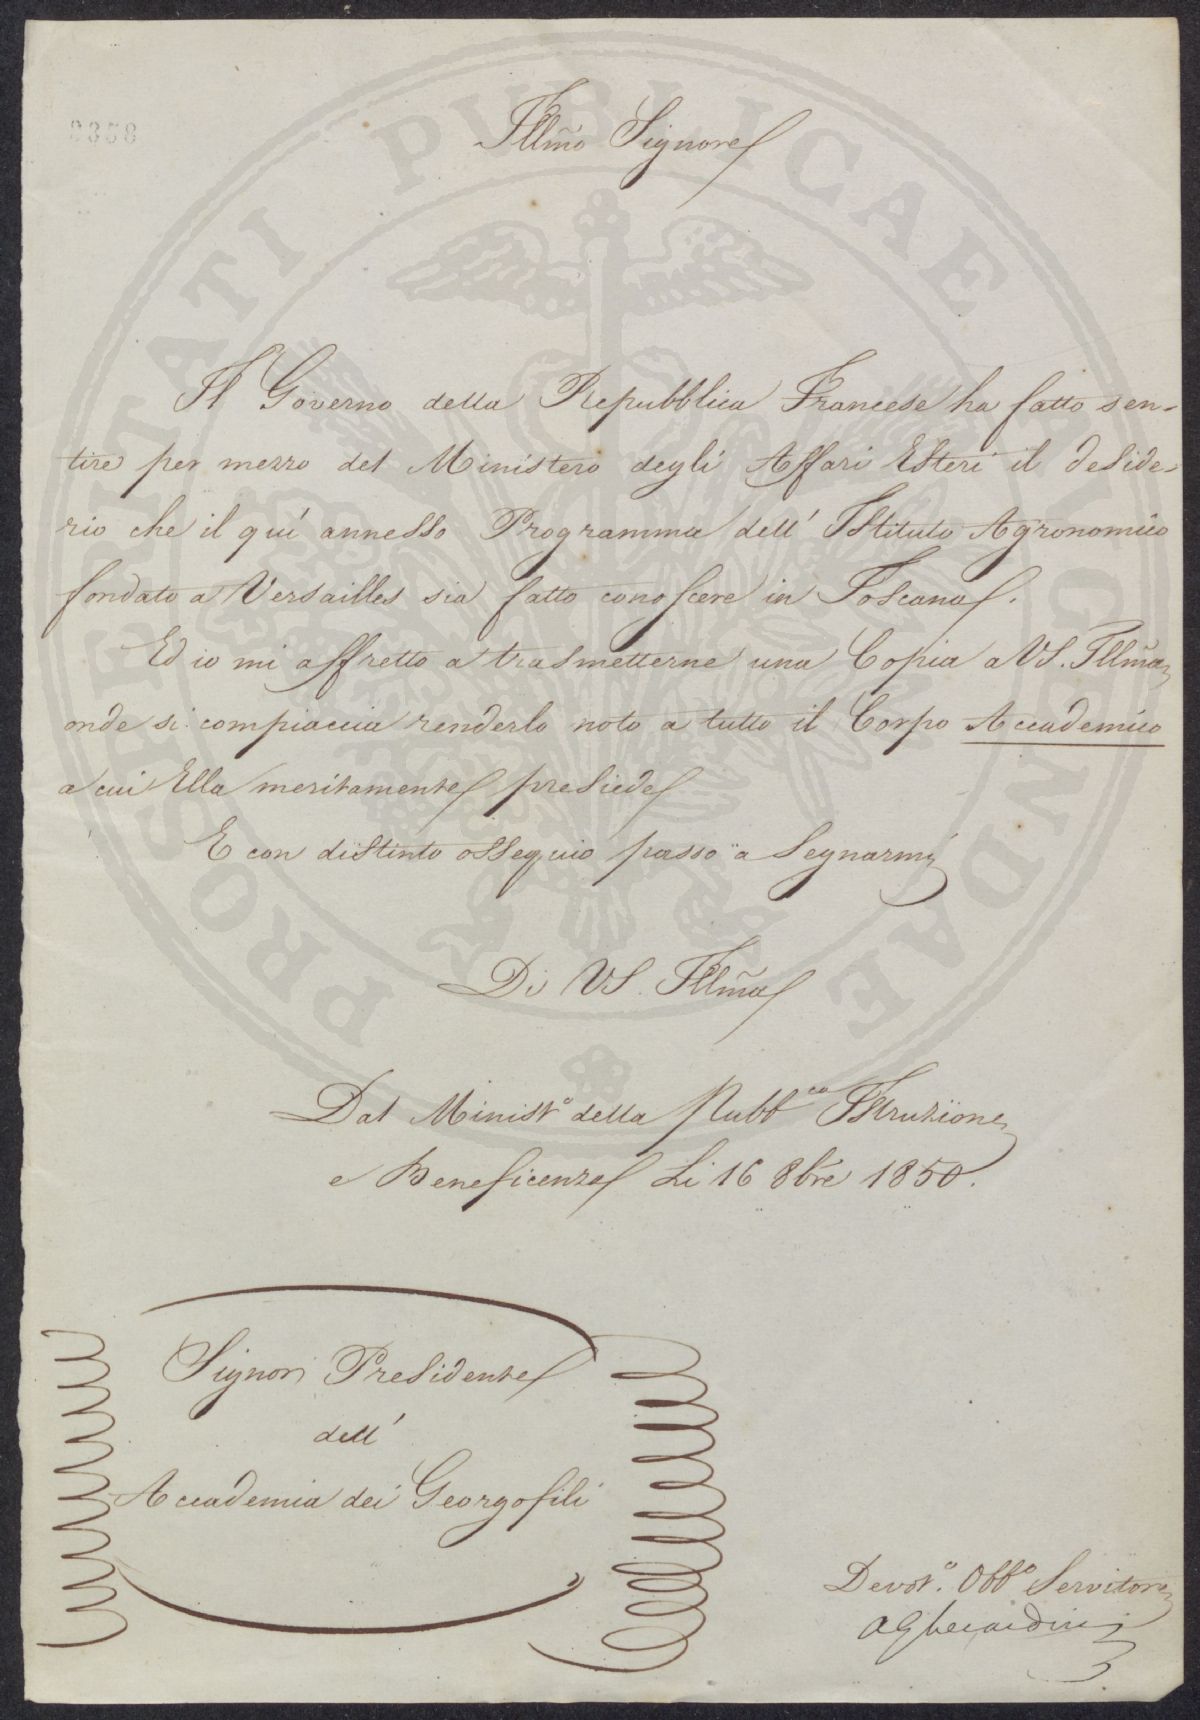 2358
Illm̃o Signore
Il Governo della Repubblica Francese ha fatto sen-
tire per mezzo del Ministero degli Affari Esteri il deside-
rio che il quí annesso Programma dell' Istituto Agronomico
fondato a Versailles sia fatto conoscere in Toscana.
Ed io mi affretto a trasmetterne una Copia a VS. Illm̃a
onde si compiaccia renderlo noto a tutto il Corpo Accademico
a cui Ella meritamente presiede
E con distinto ossequio passo a segnarmi
Di VS. Illm̃a
Dal Minist.º della Pubb.ca Istruzione
e Beneficenza Li 16 8bre 1850.
Signor Presidente
dell'
Accademia dei Georgofili
Devot.º Obb.º Servitore
PROSPERITATI PUBLICAE AUGENDAE